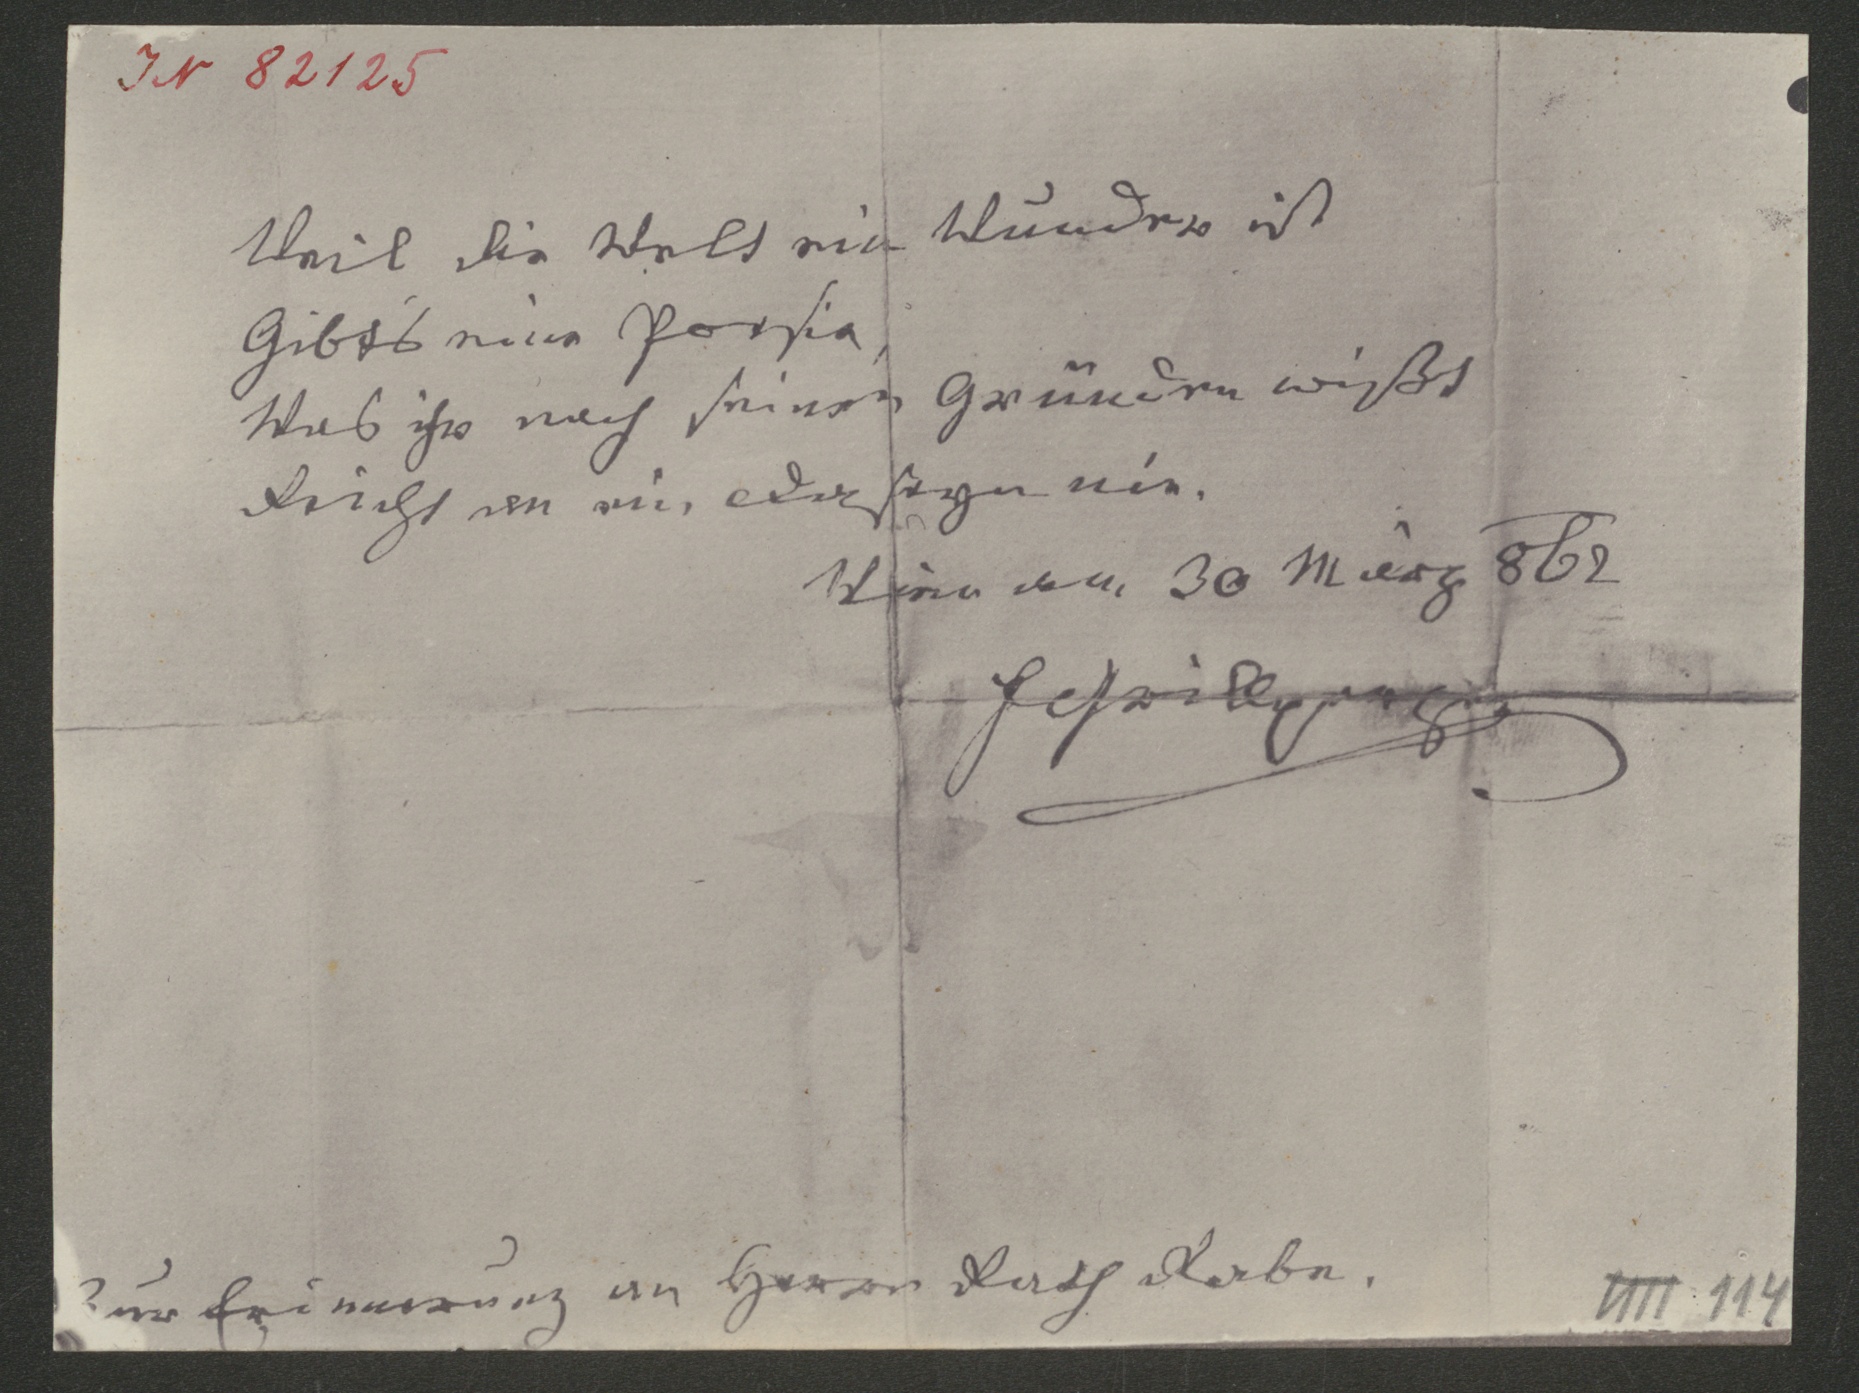 IN 82125
Weil die Welt ein Wunder ist
Gibt's eine Poesie,
Was ihr nach seinen Gründen wißt
Reicht an ein Daseyn nie.
Wien am 30 März 862
FGrillparzer
Zur Erinnerung an Herrn Rath Rabe.
114